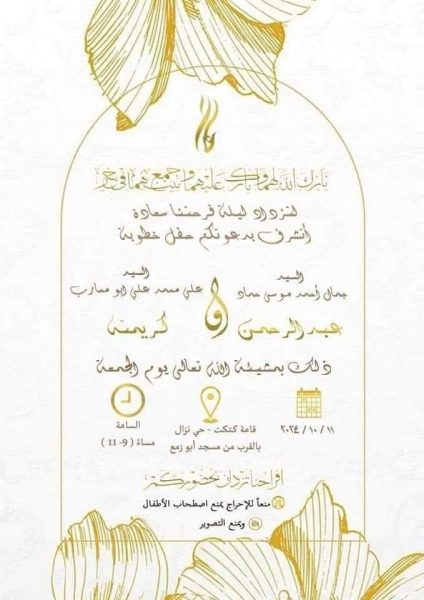 بارك الله لهما وبارك عليهما وجمع بينهما في خير
لتزداد ليلة فرحتنا سعادة
أتشرف بدعوتكم حفل خطوبة
السيد
جمال أحمد موسى حماد
السيد
علي محمد علي ابو محارب
عبدالرحمن
و
كريمته
ذلك بمشيئة الله تعالى يوم الجمعة
١١ / ١٠ / ٢٠٢٤
قاعة كتكت - حي نزال
بالقرب من مسجد أبو زمع
الساعة
مساءً (9 - 11)
افراحنا تزدان بحضوركم
منعاً للإحراج يمنع اصطحاب الأطفال
ويمنع التصوير